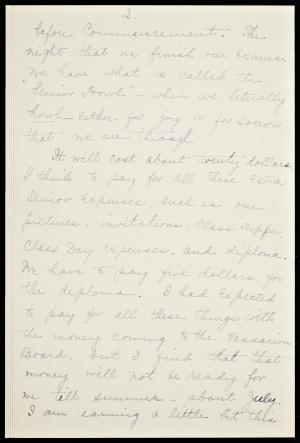 2.
before Commencement. The
night that we finish our Exams.
we have what is called the
"Senior Howl" - when we literally
howl - Either for joy or for sorrow
that we are through.
It will cost about twenty dollars,
I think, to pay for all these Extra
Senior Expenses, such as our
pictures, invitations, Class Supper,
Class Day Expenses, and diploma.
We have to pay five dollars for
the diploma. I had Expected
to pay for all these things with
the money coming to the Vassarion
Board, but I find that that
money will not be ready for
us till summer - about July.
I am earning a little bit this